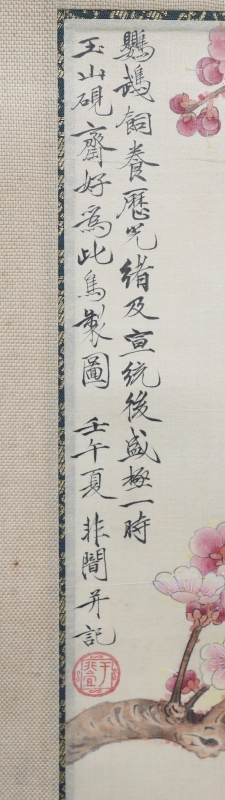 鸚鵡飼養歷光緒及宣統後盛極一時
玉山硯齋好為此鳥製圖 壬午夏 非闇并記